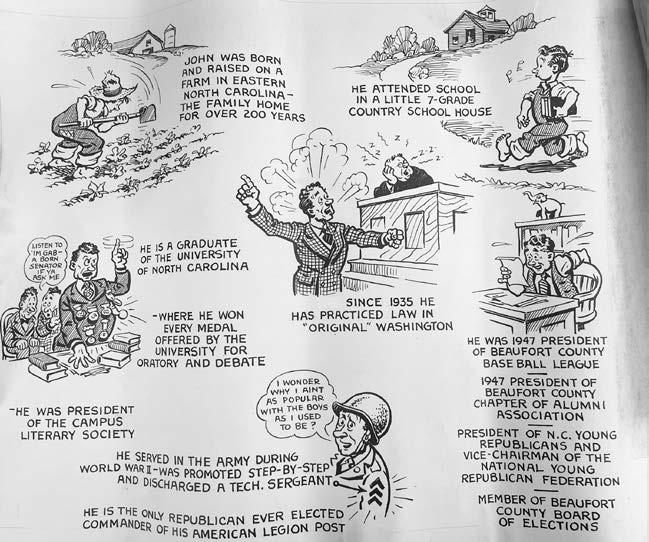 JOHN WAS BORN
AND RAISED ON A
FARM IN EASTERN
NORTH CAROLINA—
THE FAMILY HOME
FOR OVER 200 YEARS
HE ATTENDED SCHOOL
IN A LITTLE 7-GRADE
COUNTRY SCHOOL HOUSE
LISTEN TO
'IM GAB-
A BORN
SENATOR
IF YA
ASK ME
HE IS A GRADUATE
OF THE UNIVERSITY
OF NORTH CAROLINA
-WHERE HE WON
EVERY MEDAL
OFFERED BY THE
UNIVERSITY FOR
ORATORY AND DEBATE
-HE WAS PRESIDENT
OF THE CAMPUS
LITERARY SOCIETY
SINCE 1935 HE
HAS PRACTICED LAW IN
"ORIGINAL" WASHINGTON
HE WAS 1947 PRESIDENT
OF BEAUFORT COUNTY
BASE BALL LEAGUE
1947 PRESIDENT OF
BEAUFORT COUNTY
CHAPTER OF ALUMNI
ASSOCIATION
PRESIDENT OF N.C. YOUNG
REPUBLICANS AND
VICE-CHAIRMAN OF THE
NATIONAL YOUNG
REPUBLICAN FEDERATION
MEMBER OF BEAUFORT
COUNTY BOARD
OF ELECTIONS
I WONDER
WHY I AINT
AS POPULAR
WITH THE BOYS
AS I USED
TO BE?
HE SERVED IN THE ARMY DURING
WORLD WAR II-WAS PROMOTED STEP-BY-STEP
AND DISCHARGED A TECH. SERGEANT
HE IS THE ONLY REPUBLICAN EVER ELECTED
COMMANDER OF HIS AMERICAN LEGION POST